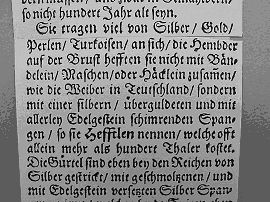 so nicht hundert Jahr alt seyn.
Sie tragen viel von Silber / Gold /
Perlen / Turkoisen / an sich / die Hembder
auf der Brust hefften sie nicht mit Bän-
delein / Maschen / oder Häcklein zusamen /
wie die Weiber in Teutschland / sondern
mit einer silbern / übergulderten und mit
allerley Edelgestein schimrenden Span-
gen / so sie Hefftlen nennen / welche oft
allein mehr als hundert Thaler kostet.
Die Gürtel sind eben bey den Reichen von
Silber gestrickt / mit geschmoltzenen / und
mit Edelgestein versetzten Silber Span-